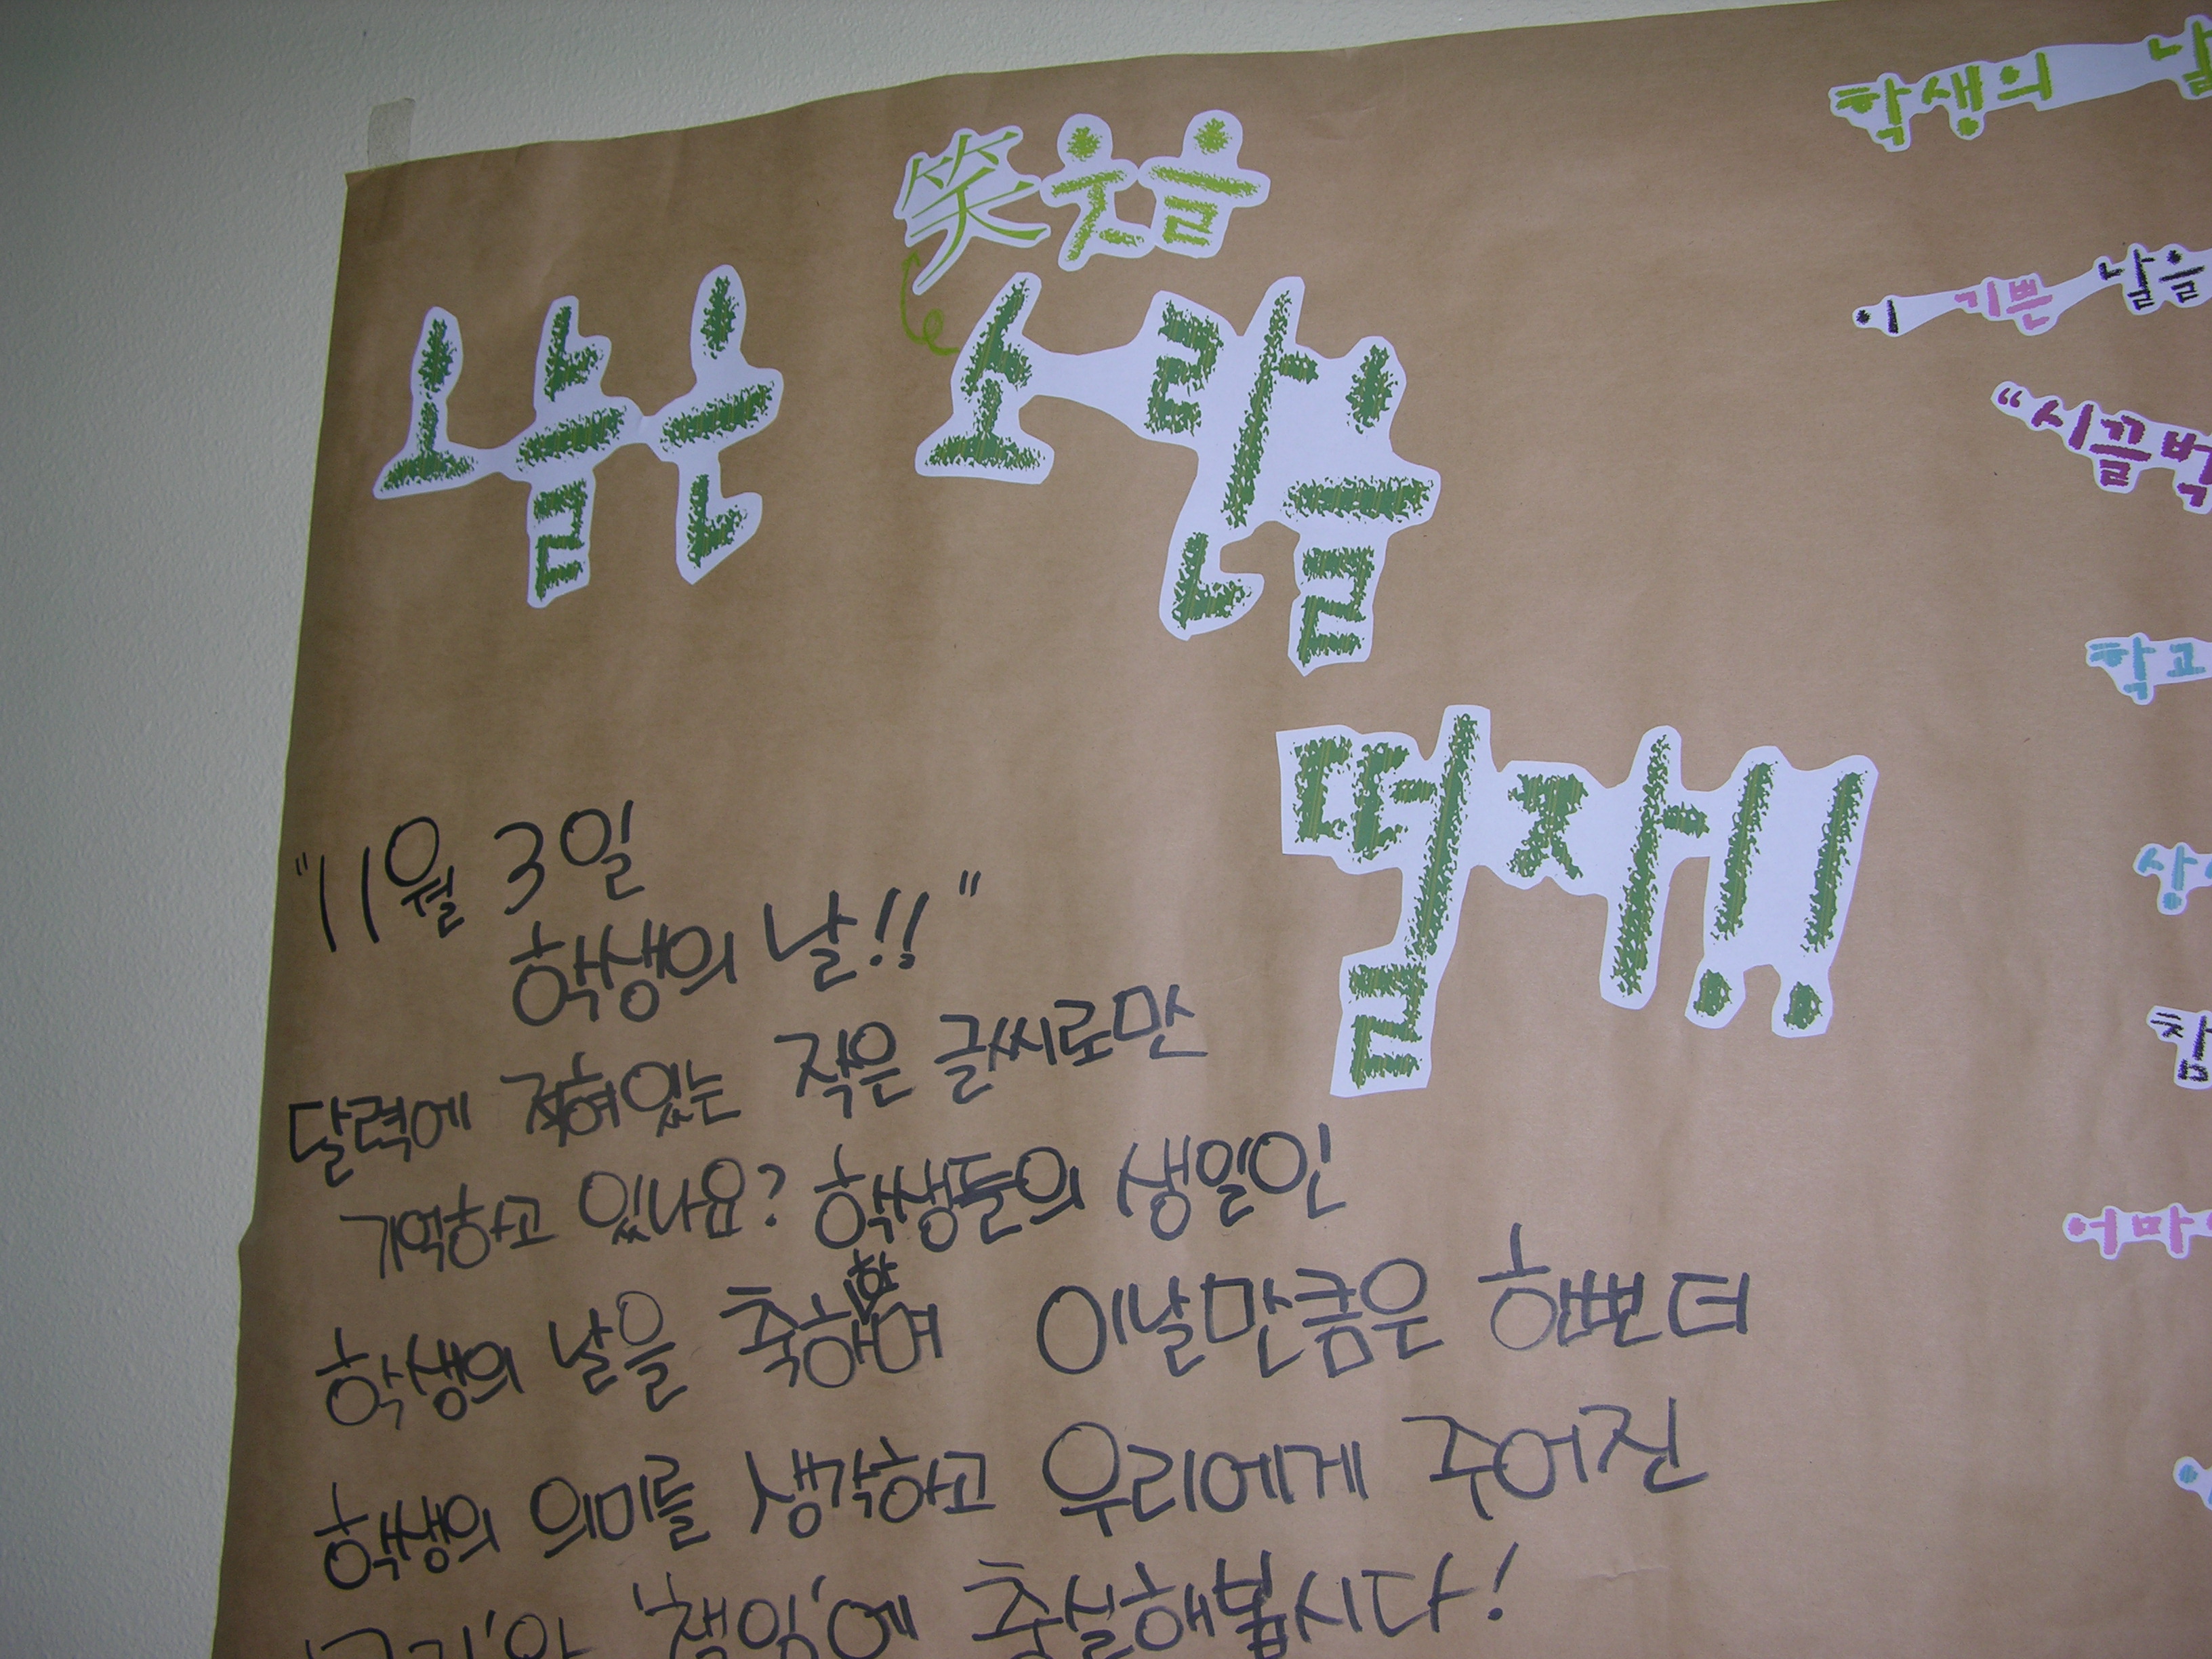 笑 웃을
오늘은 소란을
떨자!!
"11월 3일
학생의 날!!"
달력에 적혀있는 작은 글씨로만
기억하고 있나요? 학생들의 생일인
학생의 날을 축하하며 이날만큼은 한번 더
학생의 의미를 생각하고 우리에게 주어진
'책임'에 충실해봅시다!
학생의 날
이 기쁜 날을
"시끌벅
학교
상
참
어마